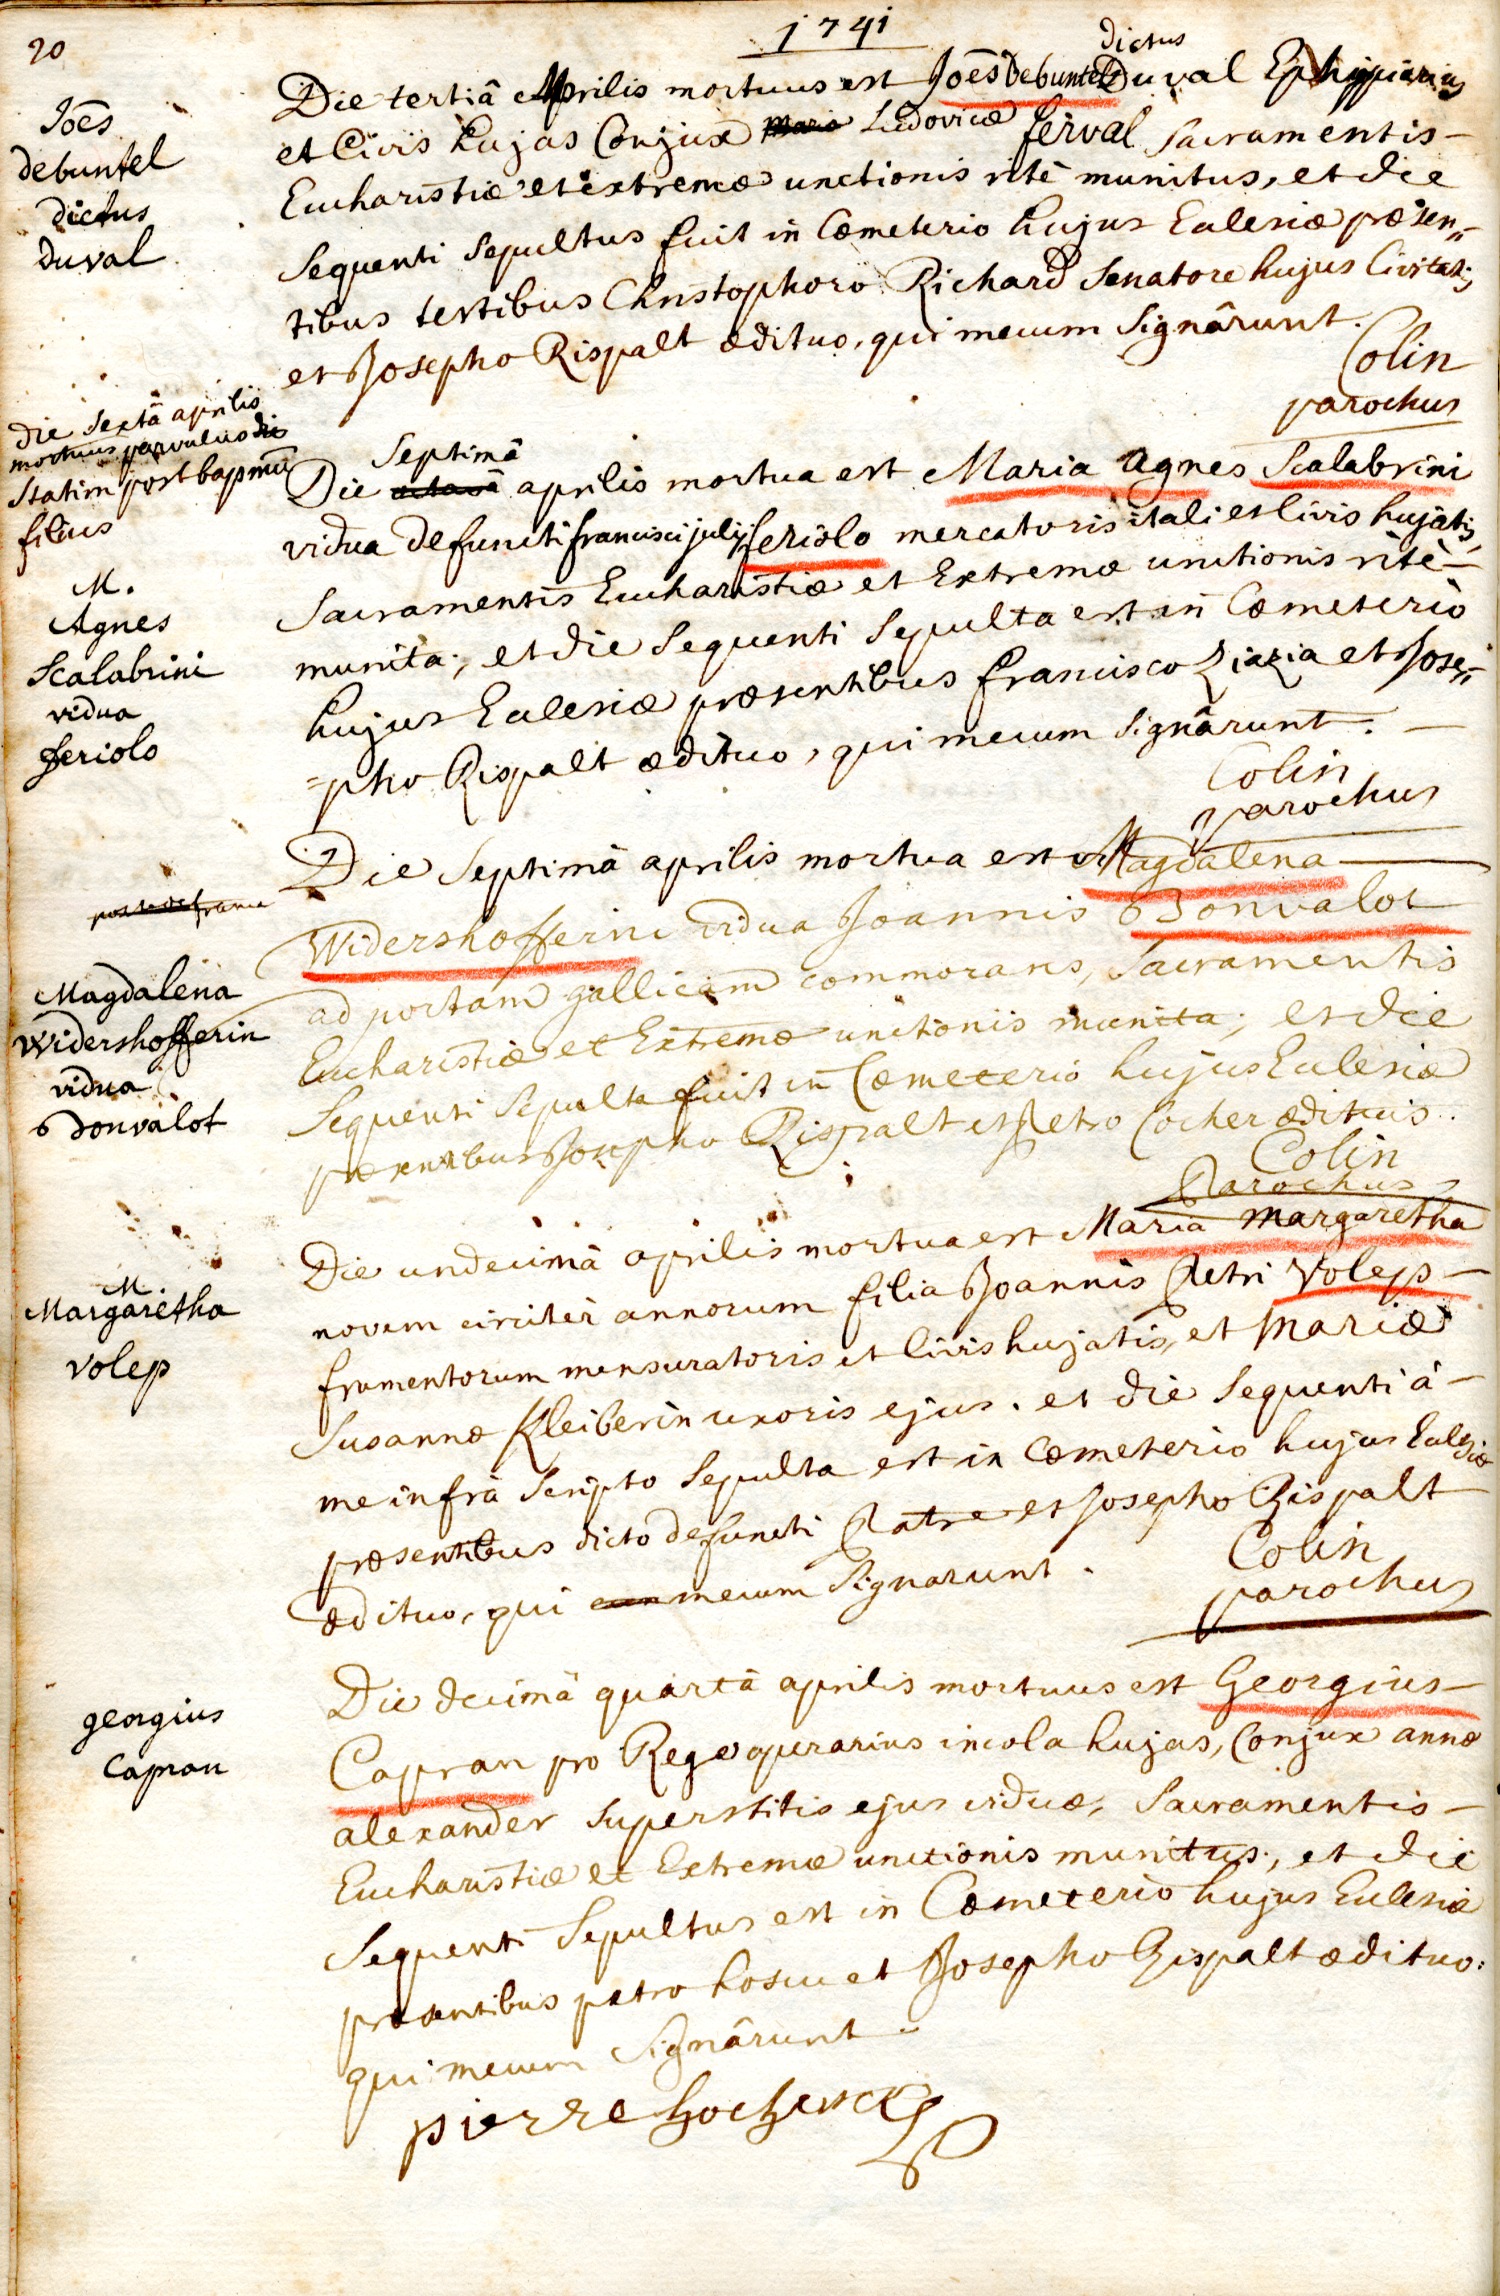 20
1741
Joēs
debuntel
dictus
duval
dictus
Die tertiâ Aprilis mortuus est Joēs Debuntel Duval Ephippiarius
et Civis hujas Conjux Maria Ludovicæ ferval sacramentis
Eucharistiæ et extremæ unctionis ritè munitus, et die
sequenti sepultus fuit in Cœmeterio hujus Ecclesiæ præsen-
tibus testibus Christophoro Richard senatore hujus Civitatis
et Josepho Rispalt ædituo, qui mecum signârunt.
Colin
parochus
die sextâ aprilis
mortuus parvulus
statim post bapmū
filius
M.
Agnes
Scalabrini
vidua
feriolo
Septimâ
Die octavâ aprilis mortua est Maria Agnes Scalabrini
vidua defuncti francisci julij feriolo mercatoris itali et Civis hujatis,
sacramentis Eucharistiæ et Extremæ unctionis ritè
munita; et die sequenti sepulta est in Cœmeterio
hujus Ecclesiæ præsentibus francisco Ziazia et Jose-
=pho Rispalt ædituo, qui mecum signârunt.
Colin
parochus
Magdalena
Widershofferin
vidua
Bonvalot
Die septimâ aprilis mortua est Magdalena
Widershofferin vidua Joannis Bonvalot
ad portam gallicam commorans, sacramentis
Eucharistiæ et Extremæ unctionis munita; et die
sequenti sepulta fuit in Cœmeterio hujus Ecclesiæ
præsentibus Josepho Rispalt et Petro Cocher ædituis.
Colin
Parochus
M.
Margaretha
Volep
Die undecimâ aprilis mortua est Maria Margaretha
novem circiter annorum filia Joannis Petri Volep
frumentorum mensuratoris et Civis hujatis, et Mariæ
Susannæ Kleiberin uxoris ejus. et die sequenti à
me infrà scripto sepulta est in Cœmeterio hujus Ecclesiæ
præsentibus dicto defuncti Patre et Josepho Rispalt
ædituo, qui mecum signarunt.
Colin
parochus
georgius
Capran
Die decimâ quartâ aprilis mortuus est Georgius
Capran pro Rege operarius incola hujas, Conjux annæ
alexander superstitis ejus viduæ, sacramentis
Eucharistiæ et Extremæ unctionis munitus; et die
sequenti sepultus est in Cœmeterio hujus Ecclesiæ
præsentibus petro et Josepho Rispalt ædituo.
qui mecum signârunt.
pierre